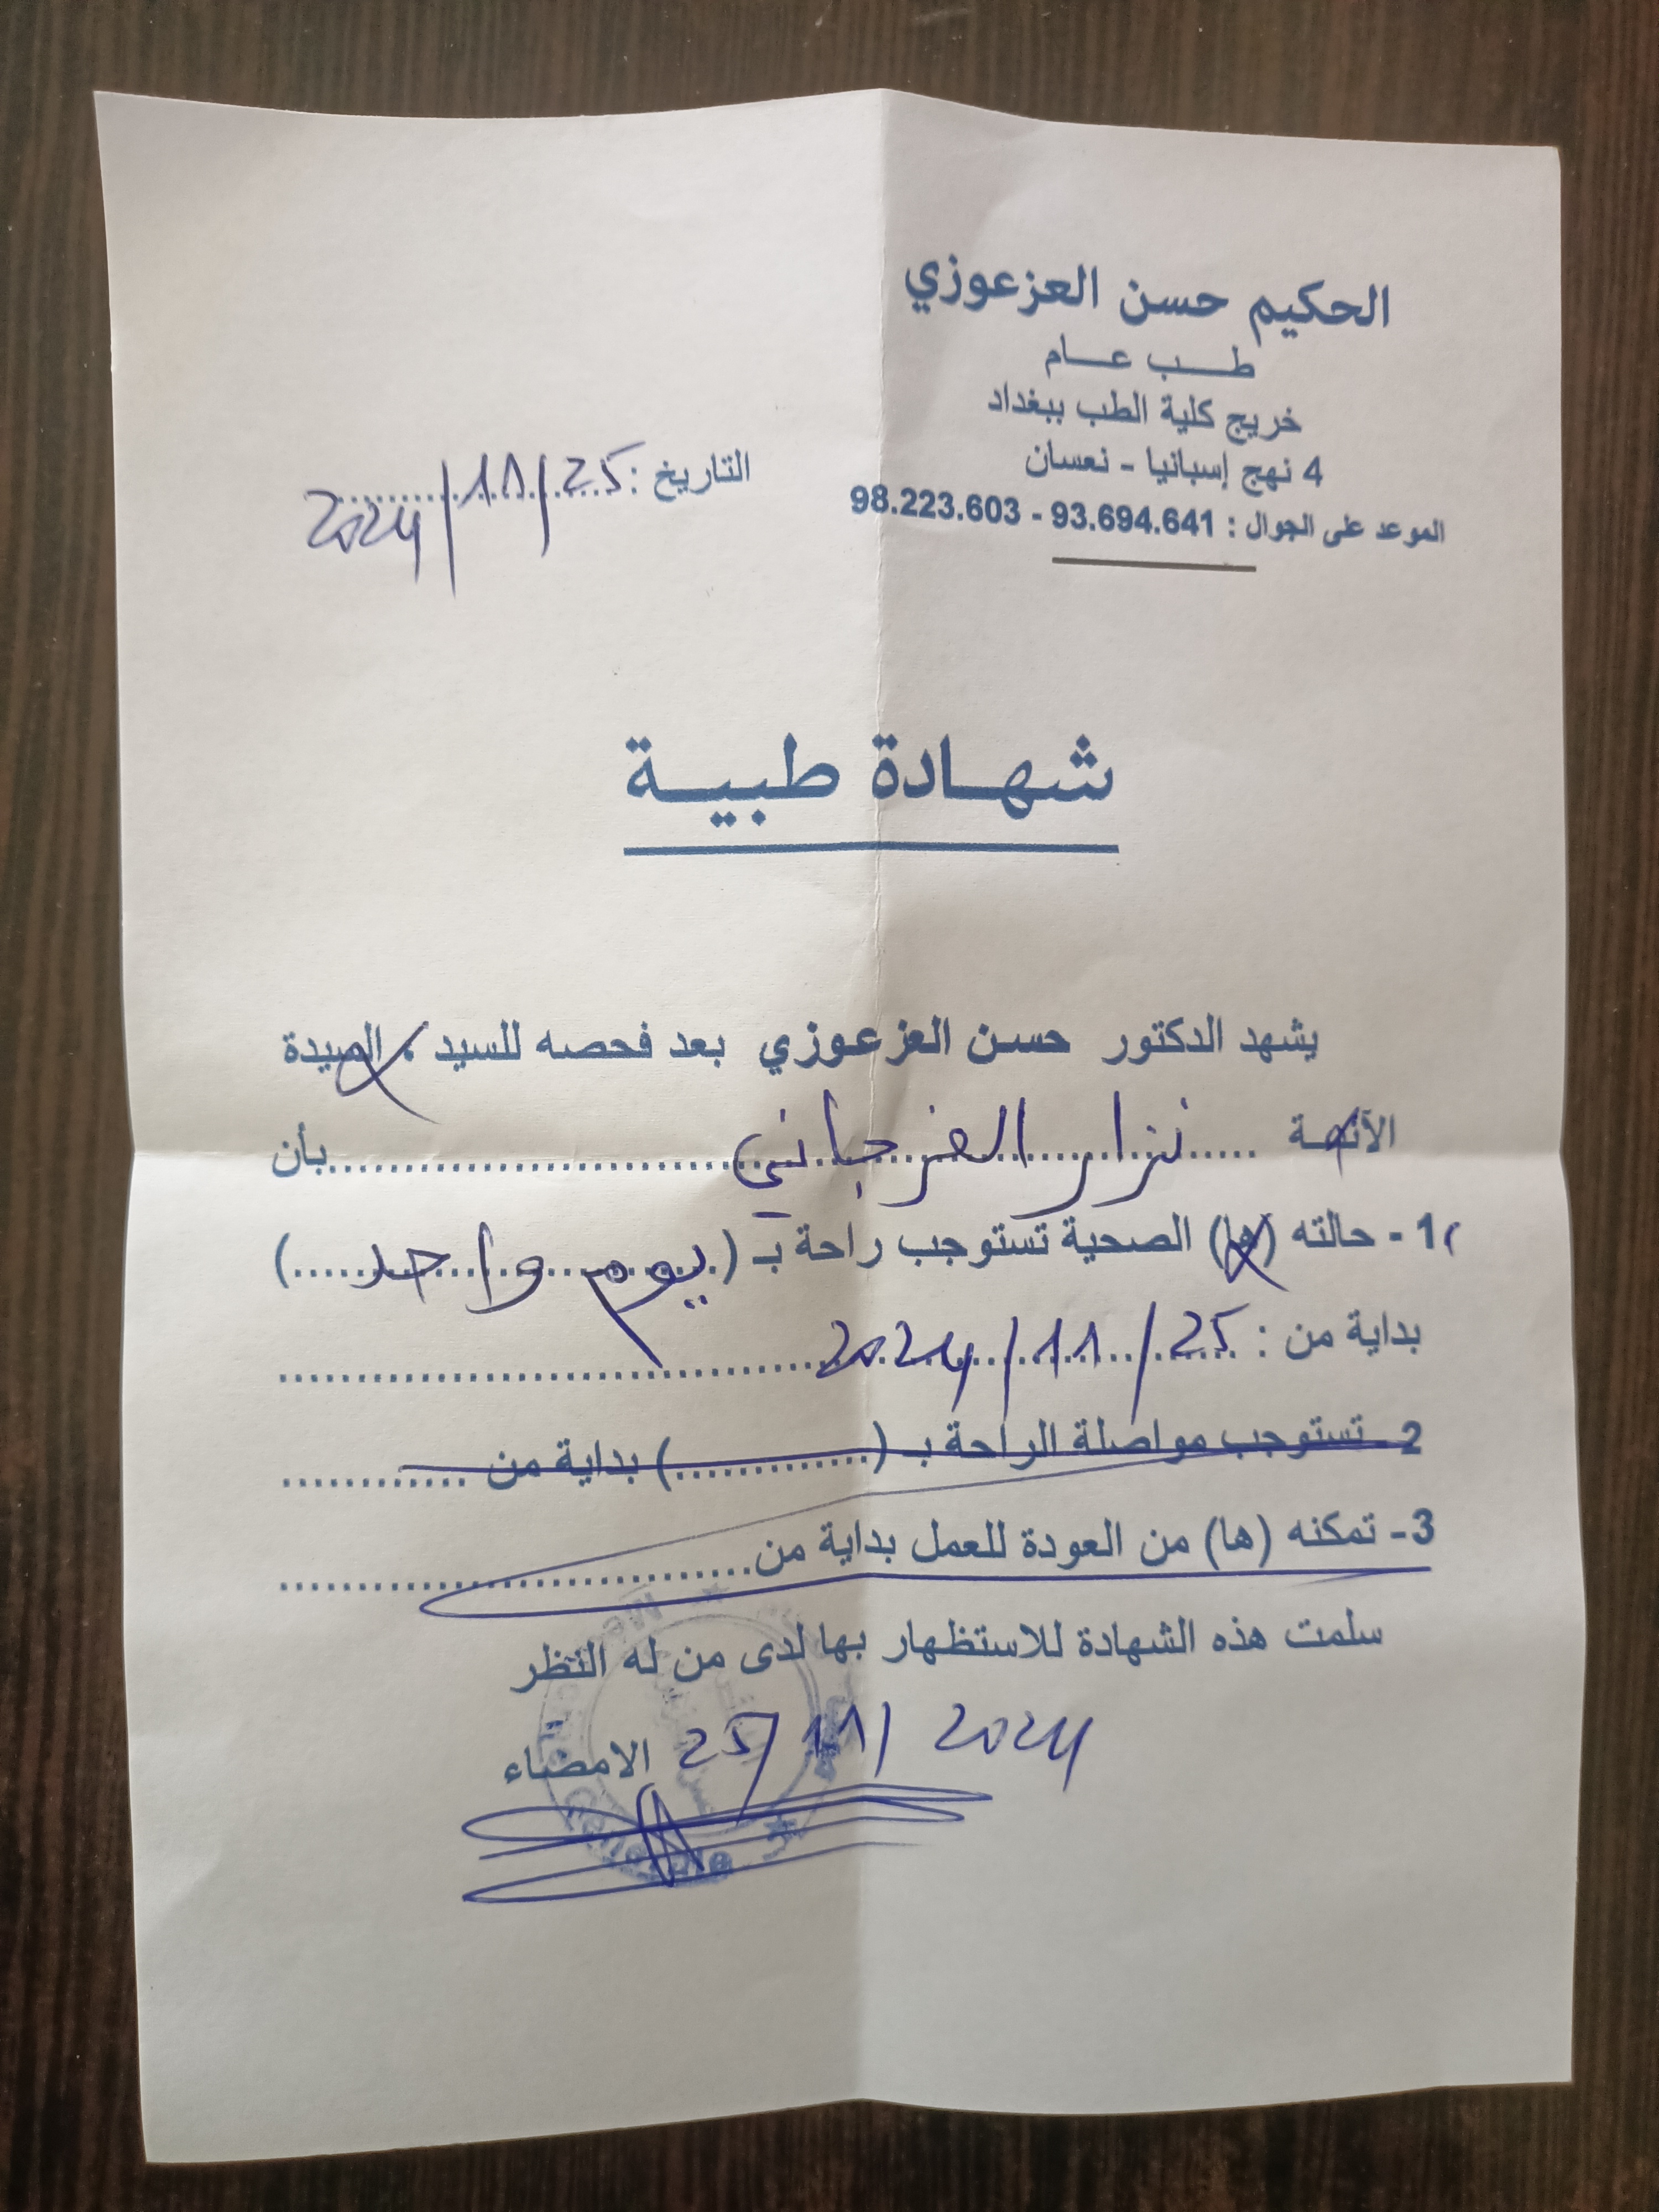 الحكيم حسن العزعوزي
طب عام
خريج كلية الطب ببغداد
4 نهج إسبانيا - نعسان
الموعد على الجوال : 93.694.641 - 98.223.603
التاريخ : 25/11/2024
شهادة طبية
يشهد الدكتور حسن العزعوزي بعد فحصه للسيد ، السيدة
الآنسة نزار الفرجاني بأن
1 - حالته (ها) الصحية تستوجب راحة بـ (يوم واحد)
بداية من : 25/11/2024
2 - تستوجب مواصلة الراحة بـ (..............) بداية من ............
3- تمكنه (ها) من العودة للعمل بداية من..............................
سلمت هذه الشهادة للاستظهار بها لدى من له النظر
الامضاء 25/11/2024
Generale